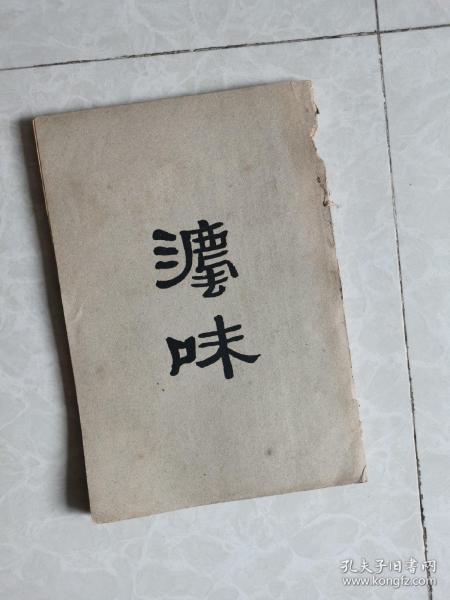 瀍味
孔夫子旧书网
www.kongfz.com